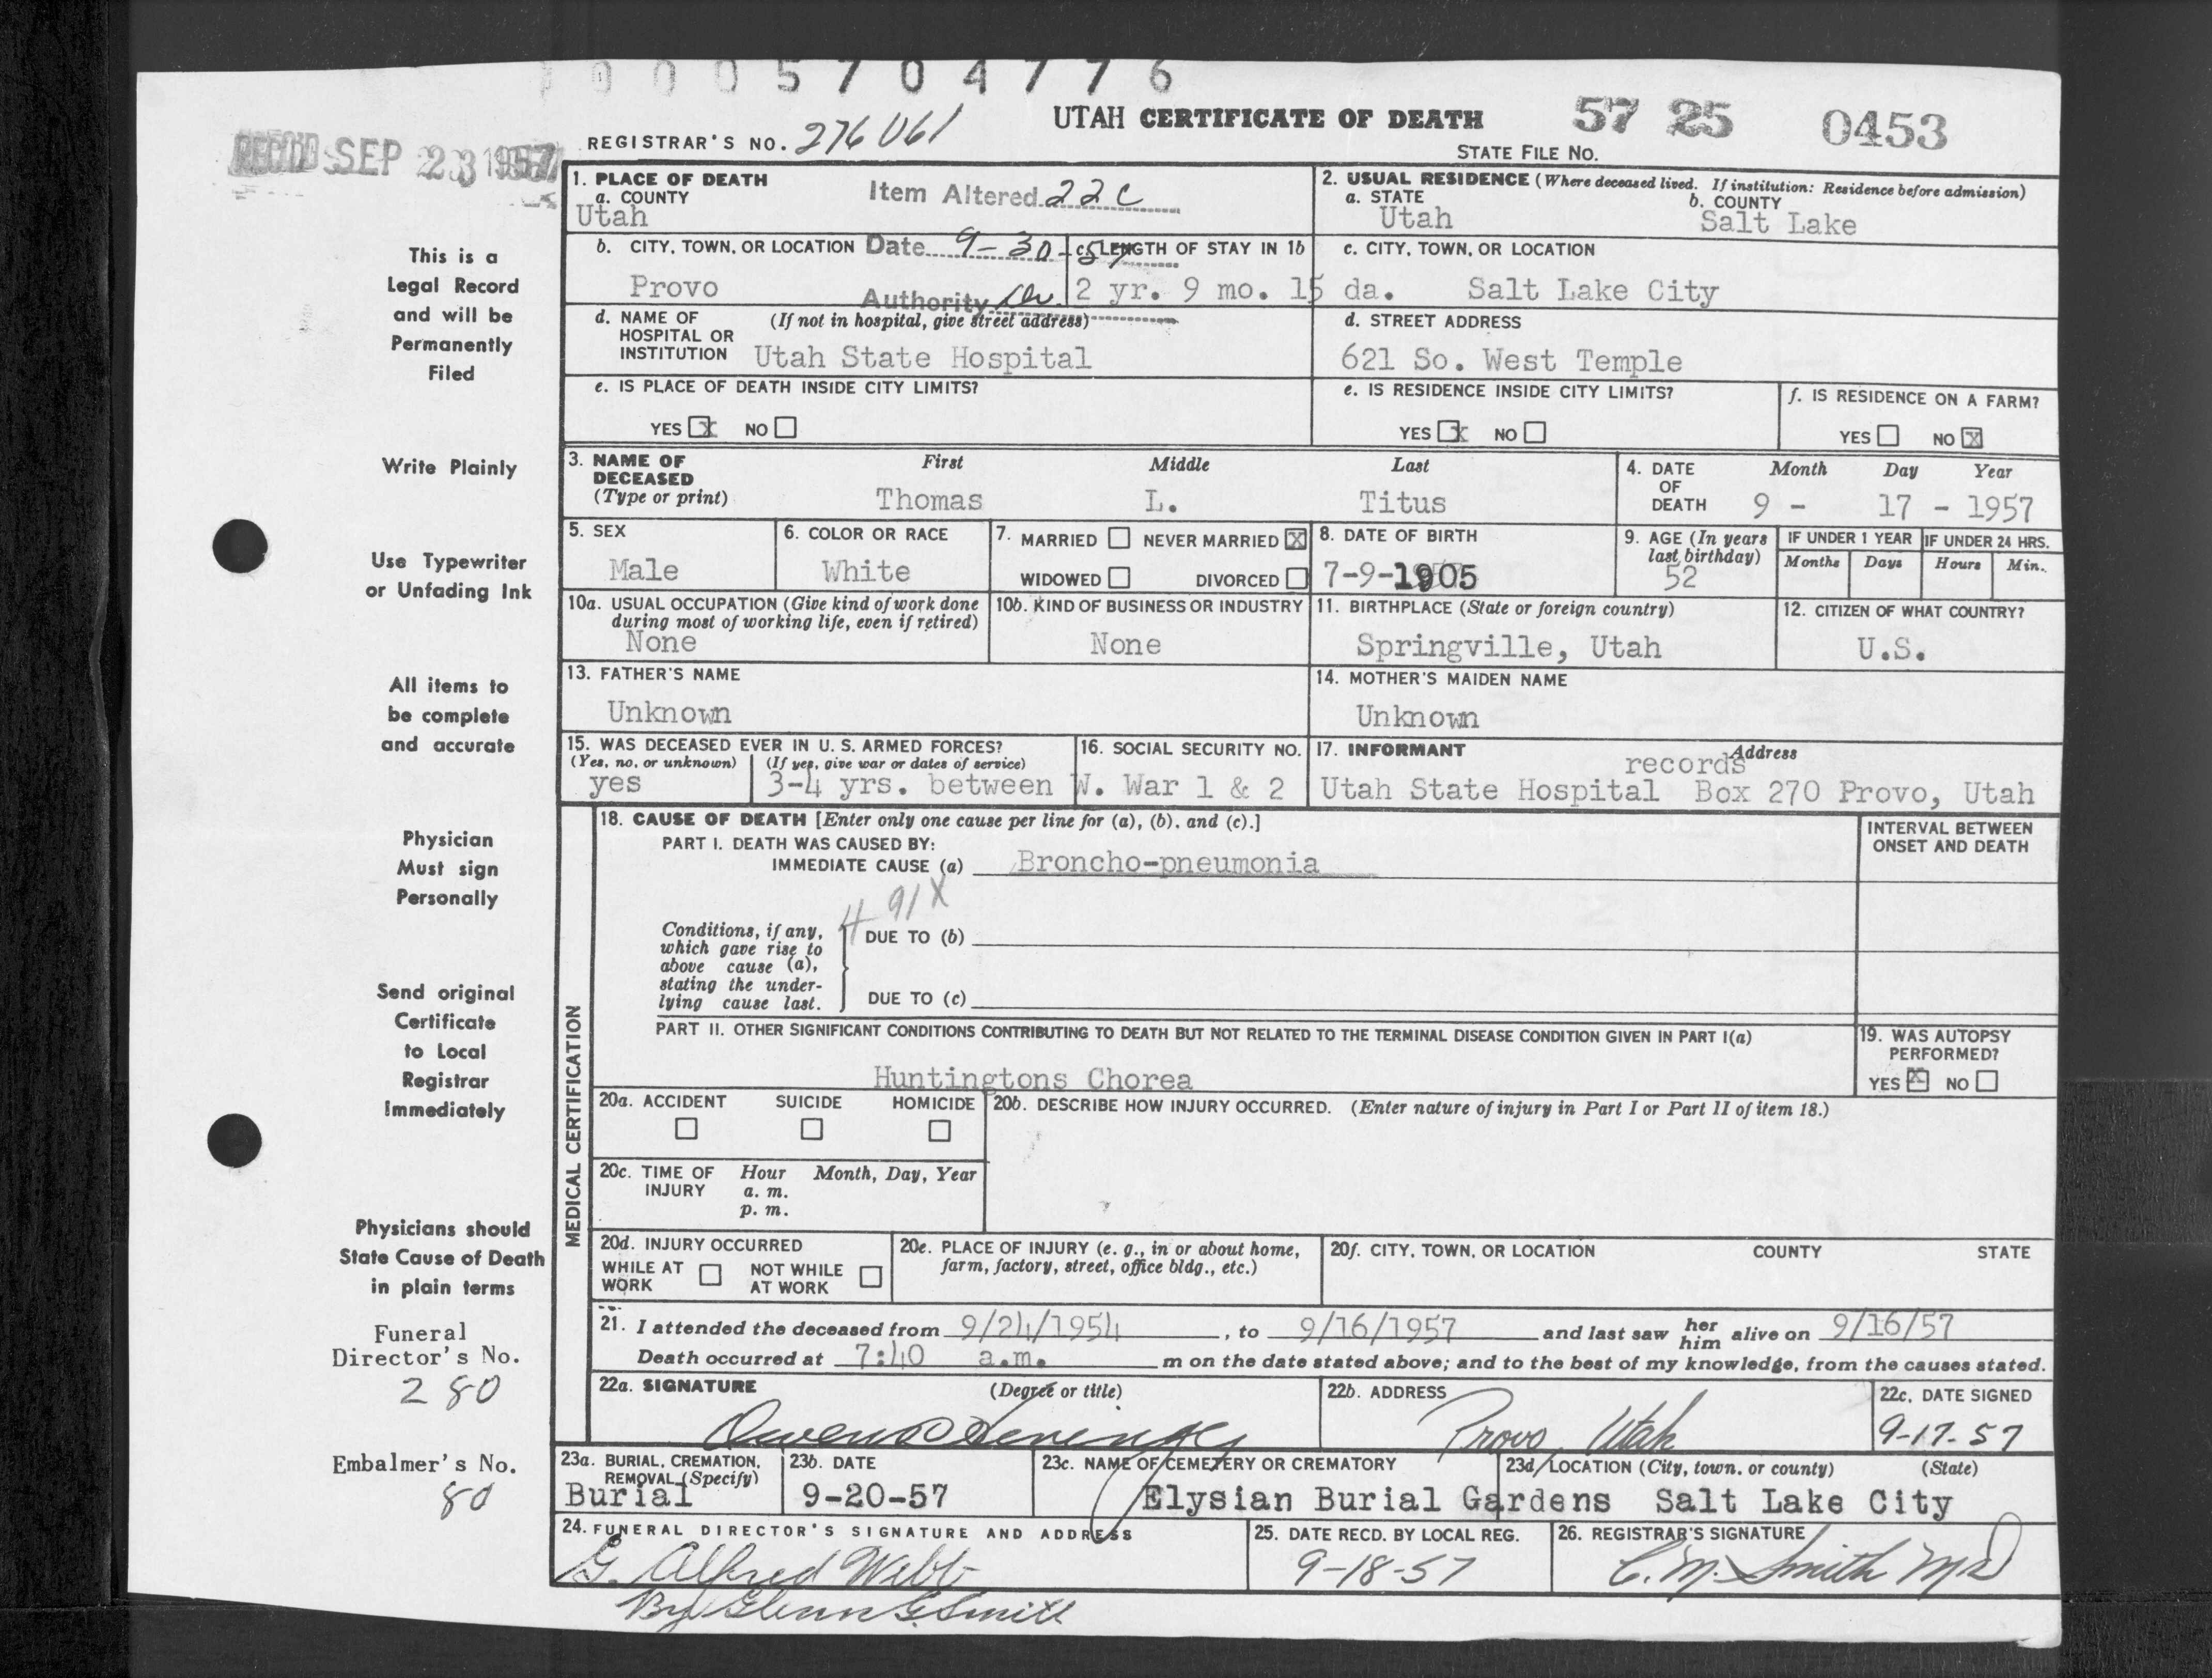 0005704776
UTAH CERTIFICATE OF DEATH
57 25 0453
REGISTRAR'S NO. 276 061
STATE FILE NO.
REC'D SEP 23 1957
1. PLACE OF DEATH
a. COUNTY
Utah
Item Altered 22c
Date 9-30-57
Authority
2. USUAL RESIDENCE (Where deceased lived. If institution: Residence before admission)
a. STATE
Utah
b. COUNTY
Salt Lake
b. CITY, TOWN, OR LOCATION
Provo
c. LENGTH OF STAY IN 1b
2 yr. 9 mo. 15 da.
c. CITY, TOWN, OR LOCATION
Salt Lake City
d. NAME OF HOSPITAL OR INSTITUTION
(If not in hospital, give street address)
Utah State Hospital
d. STREET ADDRESS
621 So. West Temple
e. IS PLACE OF DEATH INSIDE CITY LIMITS?
YES X NO
e. IS RESIDENCE INSIDE CITY LIMITS?
YES X NO
f. IS RESIDENCE ON A FARM?
YES NO X
3. NAME OF DECEASED
(Type or print)
First Middle Last
Thomas L. Titus
4. DATE OF DEATH
Month Day Year
9 - 17 - 1957
5. SEX
Male
6. COLOR OR RACE
White
7. MARRIED NEVER MARRIED X
WIDOWED DIVORCED
8. DATE OF BIRTH
7-9-1905
9. AGE (In years last birthday)
52
IF UNDER 1 YEAR
Months Days
IF UNDER 24 HRS.
Hours Min.
10a. USUAL OCCUPATION (Give kind of work done during most of working life, even if retired)
None
10b. KIND OF BUSINESS OR INDUSTRY
None
11. BIRTHPLACE (State or foreign country)
Springville, Utah
12. CITIZEN OF WHAT COUNTRY?
U.S.
13. FATHER'S NAME
Unknown
14. MOTHER'S MAIDEN NAME
Unknown
15. WAS DECEASED EVER IN U. S. ARMED FORCES?
(Yes, no, or unknown) (If yes, give war or dates of service)
yes 3-4 yrs. between W. War 1 & 2
16. SOCIAL SECURITY NO.
17. INFORMANT Address
records
Utah State Hospital Box 270 Provo, Utah
MEDICAL CERTIFICATION
18. CAUSE OF DEATH [Enter only one cause per line for (a), (b), and (c).]
INTERVAL BETWEEN ONSET AND DEATH
PART I. DEATH WAS CAUSED BY:
IMMEDIATE CAUSE (a) Broncho-pneumonia
491X
Conditions, if any,
which gave rise to
above cause (a),
stating the under-
lying cause last.
DUE TO (b)
DUE TO (c)
PART II. OTHER SIGNIFICANT CONDITIONS CONTRIBUTING TO DEATH BUT NOT RELATED TO THE TERMINAL DISEASE CONDITION GIVEN IN PART I(a)
Huntingtons Chorea
19. WAS AUTOPSY PERFORMED?
YES X NO
20a. ACCIDENT SUICIDE HOMICIDE
20b. DESCRIBE HOW INJURY OCCURRED. (Enter nature of injury in Part I or Part II of item 18.)
20c. TIME OF INJURY
Hour Month, Day, Year
a. m.
p. m.
20d. INJURY OCCURRED
WHILE AT WORK NOT WHILE AT WORK
20e. PLACE OF INJURY (e. g., in or about home, farm, factory, street, office bldg., etc.)
20f. CITY, TOWN, OR LOCATION COUNTY STATE
21. I attended the deceased from 9/24/1954, to 9/16/1957 and last saw her him alive on 9/16/57
Death occurred at 7:40 a.m. m on the date stated above; and to the best of my knowledge, from the causes stated.
22a. SIGNATURE (Degree or title)
22b. ADDRESS
Provo, Utah
22c. DATE SIGNED
9-17-57
23a. BURIAL, CREMATION, REMOVAL (Specify)
Burial
23b. DATE
9-20-57
23c. NAME OF CEMETERY OR CREMATORY
Elysian Burial Gardens
23d. LOCATION (City, town, or county) (State)
Salt Lake City
24. FUNERAL DIRECTOR'S SIGNATURE AND ADDRESS
G. Alfred Webb
By Glenn G Smith
25. DATE RECD. BY LOCAL REG.
9-18-57
26. REGISTRAR'S SIGNATURE
C. M. Smith MD
This is a
Legal Record
and will be
Permanently
Filed
Write Plainly
Use Typewriter
or Unfading Ink
All items to
be complete
and accurate
Physician
Must sign
Personally
Send original
Certificate
to Local
Registrar
Immediately
Physicians should
State Cause of Death
in plain terms
Funeral
Director's No.
280
Embalmer's No.
80